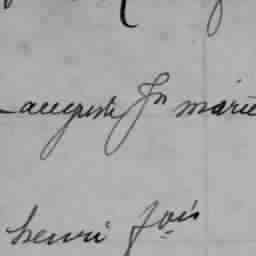 auguste Jn marie
henri fois